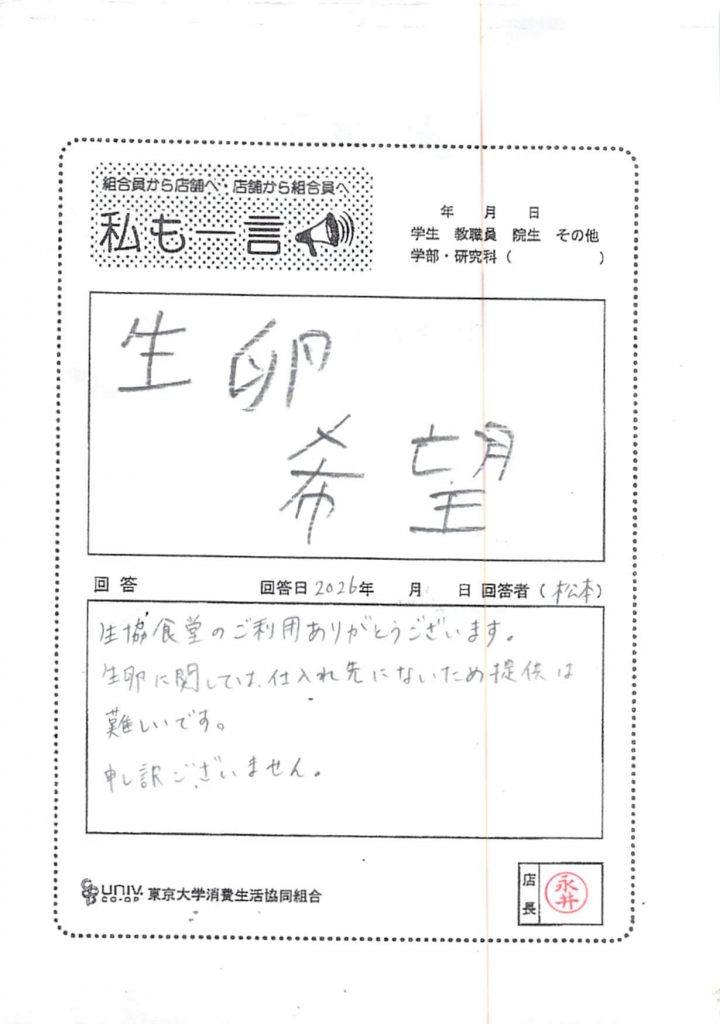 組合員から店舗へ・店舗から組合員へ
私も一言
年 月 日
学生 教職員 院生 その他
学部・研究科( )
生卵
希望
回答 回答日2026年 月 日 回答者(松本)
生協食堂のご利用ありがとうございます。
生卵に関しては、仕入れ先にないため提供は
難しいです。
申し訳ございません。
UNIV. CO-OP 東京大学消費生活協同組合
店長 永井